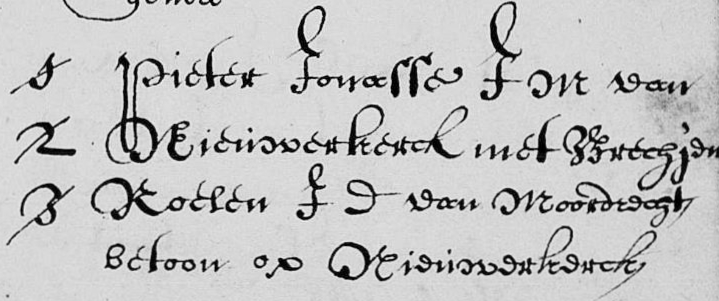 1 Pieter Jonasse J M van
2 Nieuwerkerck met Grechjen
3 Roelen J D van Moordrecht
betoon op Nieuwerkerck